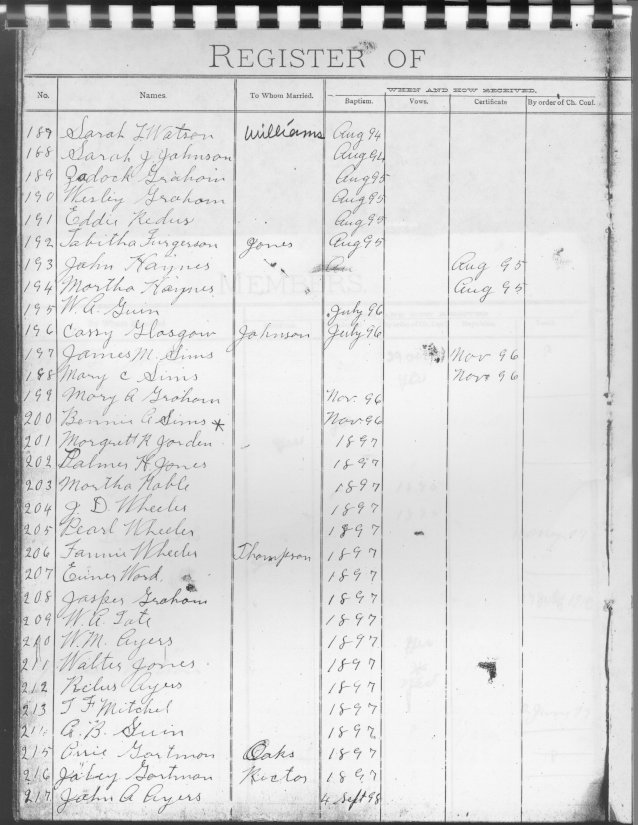 REGISTER OF
WHEN AND HOW RECEIVED.
No. Names. To Whom Married. Baptism. Vows. Certificate By order of Ch. Conf.
189 Sarah L Watson Williams Aug 94
188 Sarah J Johnson Aug 94
189 Zadock Graham Aug 95
190 Wesley Graham Aug 95
191 Eddie Redus Aug 95
192 Tabitha Furgerson Jones Aug 95
193 John Haynes Aug 95
194 Martha Haynes Aug 95
195 W. A. Guin July 96
196 Carry Glasgow Johnson July 96
197 James M. Sims Nov 96
198 Mary C Sims Nov 96
199 Mary A Graham Nov. 96
200 Bennie A Sims * Nov 96
201 Margrett R Jorden 1897
202 Palmer H Jones 1897
203 Martha Hable 1897
204 J. D. Wheeler 1897
205 Pearl Wheeler 1897
206 Fannie Wheeler Thompson 1897
207 Word. 1897
208 Jasper Graham 1897
209 W. A. Tate 1897
210 W. M. Ayers 1897
211 Walter Jones 1897
212 Redus Ayers 1897
213 T F Mitchel 1897
21 A. B. Guin 1897
215 Orrie Gortman Oaks 1897
216 Gortman Rector 1897
217 John A Ayers 4 Sept 98
MEMBERS.